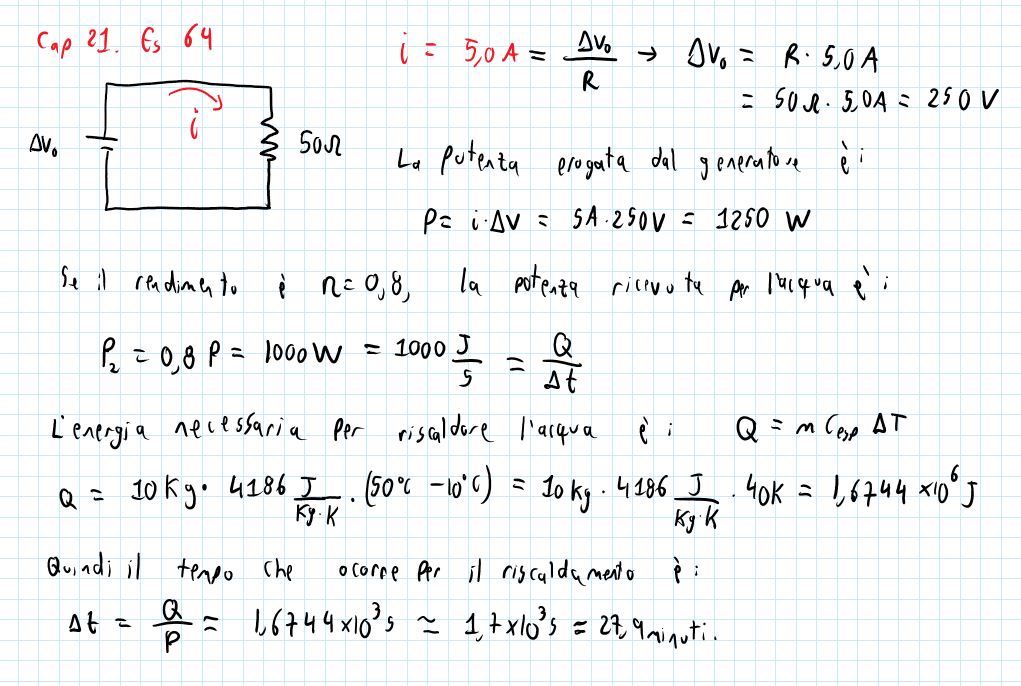 Cap 21. Es 64
i = 5,0 A = ΔV₀/R → ΔV₀ = R · 5,0 A
= 50 Ω · 5,0A = 250 V
ΔV₀
i
50Ω
La potenza erogata dal generatore è:
P = i·ΔV = 5A·250V = 1250 W
Se il rendimento è n=0,8, la potenza ricevuta per l'acqua è:
P₂ = 0,8 P = 1000 W = 1000 J/s = Q/Δt
L'energia necessaria per riscaldare l'acqua è: Q = m Cesp ΔT
Q = 10 Kg · 4186 J/Kg·K · (50°C − 10°C) = 10 kg · 4186 J/Kg·K · 40K = 1,6744 ×10⁶ J
Quindi il tempo che ocorre per il riscaldamento è:
Δt = Q/P = 1,6744×10³ s ≃ 1,7×10³ s = 27,9 minuti.